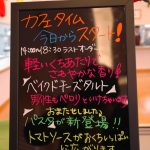 カフェタイム
今日からスタート!
14:00〜18:30ラストオーダー
軽いくちあたりと
さわやかな香り
ベイクドチーズタルト
男性もペロリといけちゃいます
おまたせしました
パスタが新登場!!
トマトソースがおくちいっぱい
に広がります